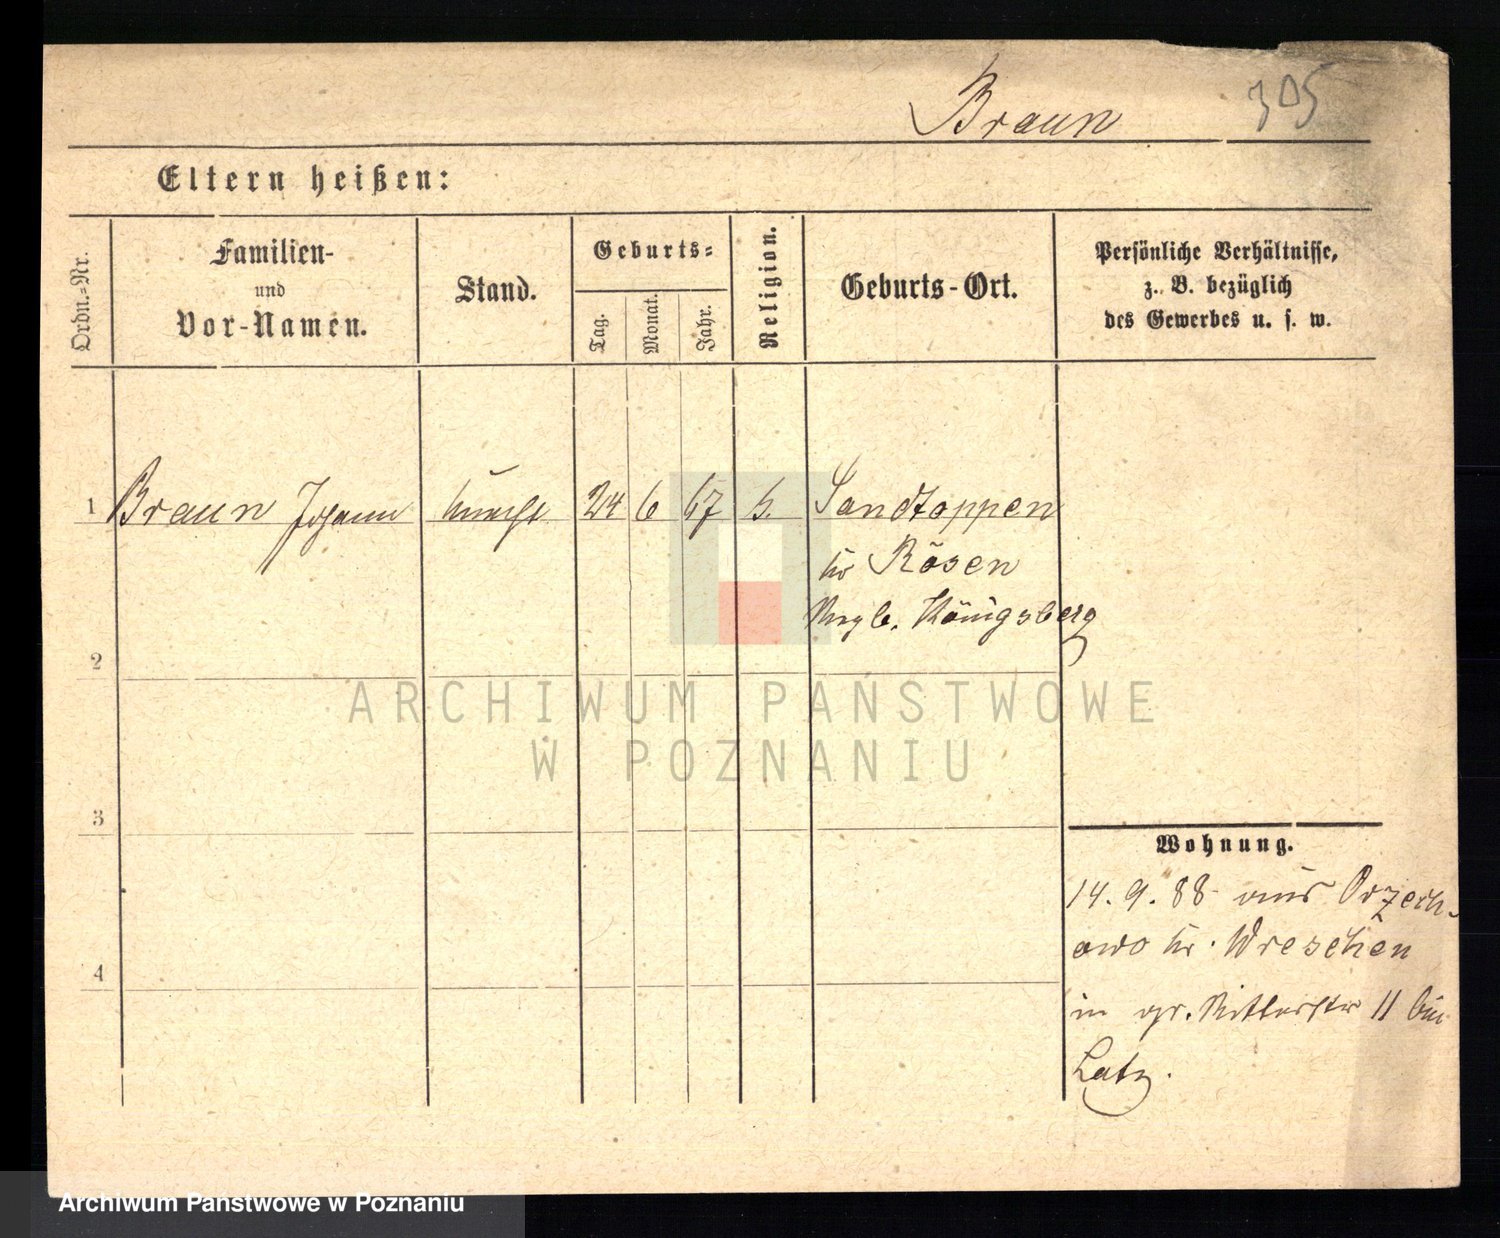 Braun 305
Eltern heißen:
Ordn.-Nr.
Familien-
und
Vor-Namen.
Stand.
Geburts-
Tag.
Monat.
Jahr.
Religion.
Geburts-Ort.
Persönliche Verhältnisse,
z. B. bezüglich
des Gewerbes u. s. w.
1 Braun Johann Knecht 24 6 67 Sandtoppen
Kr Rösen
Königsberg
2
ARCHIWUM PAŃSTWOWE
W POZNANIU
3
Wohnung.
14. 9. 88 aus Orzech-
owo Kr. Wreschen
4
in gr. Ritterstr 11 bei
Latz.
Archiwum Państwowe w Poznaniu